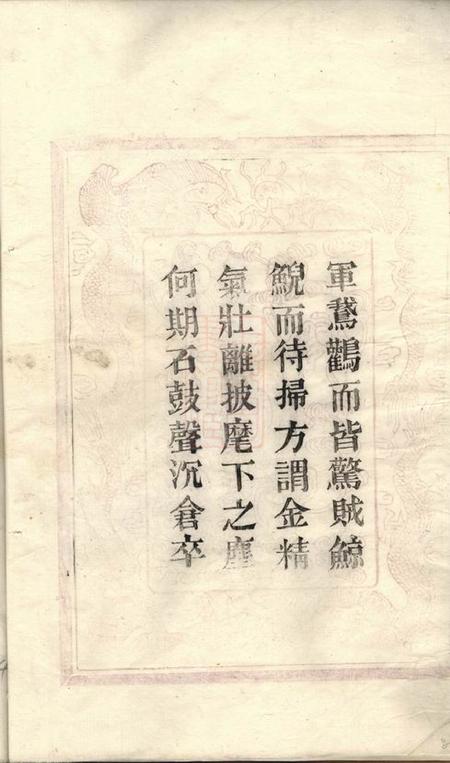 軍鵞鸛而皆驚賊鯨
鯢而待掃方謂金精
氣壯離披麾下之塵
何期石鼓聲沉倉卒